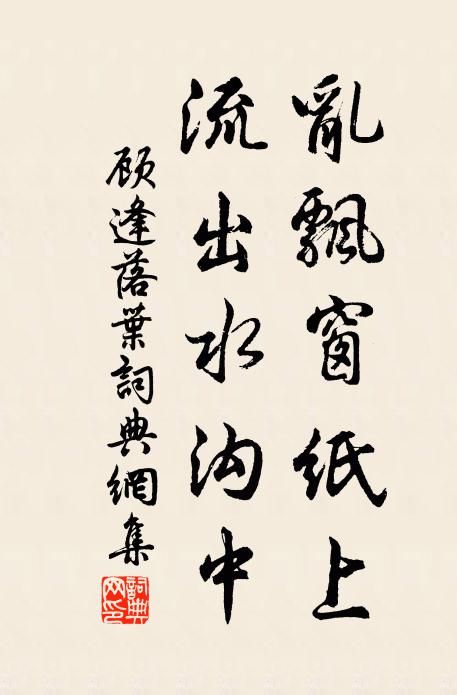 亂飄窗紙上
流出水沟中
顾逢落葉詞典網集
詞典网印